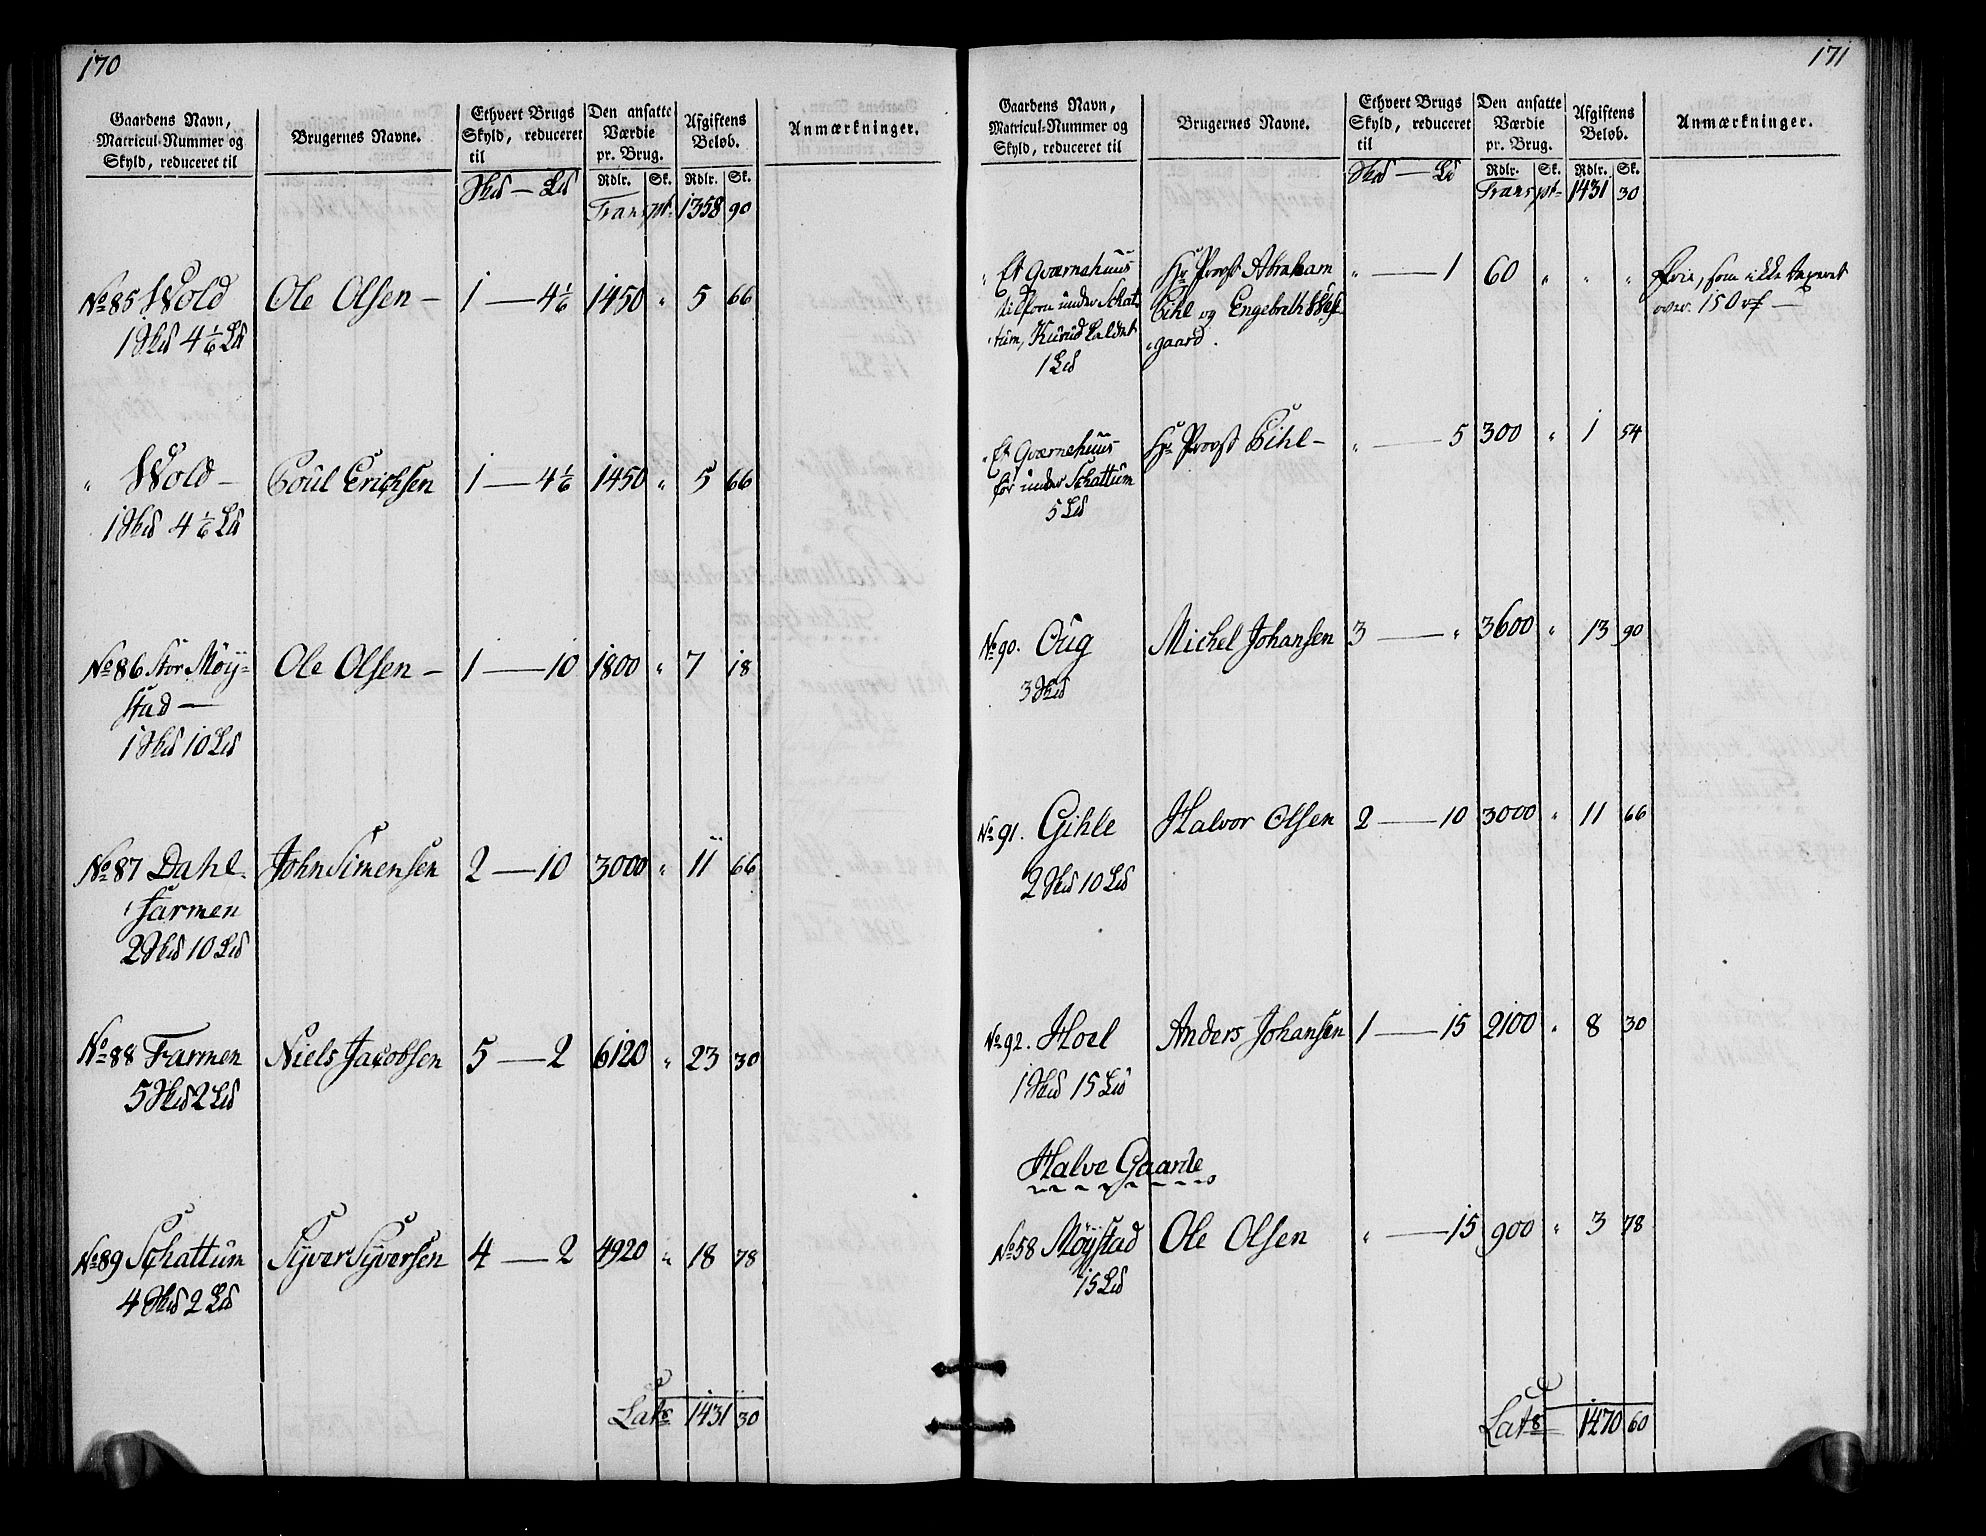 170
Gaardens Navn, Matricul-Nummer og Skyld, reduceret til
Brugernes Navne.
Ethvert Brugs Skyld, reduceret til
Den ansatte Værdie pr. Brug.
Afgiftens Beløb.
Anmærkninger.
Skd — Ld Rdlr. Sk. Rdlr. Sk.
Transpt. 1358 90
No 85 Wold Ole Olsen — 1 — 4 1/6 1450 " 5 66
1 Skd 4 1/6 Ld
" Wold — Poul Erichsen 1 — 4 1/6 1450 " 5 66
1 Skd 4 1/6 Ld
No 86 Stor Møy- Ole Olsen — 1 — 10 1800 " 7 18
stad —
1 Skd 10 Ld
No 87 Dahl- John Simensen 2 — 10 3000 " 11 66
farmen
2 Skd 10 Ld
No 88 Farmen Niels Jacobsen 5 — 2 6120 " 23 30
5 Skd 2 Ld
No 89 Schattum Syver Syversen 4 — 2 4920 " 18 78
4 Skd 2 Ld
Lats 1431 30
171
Gaardens Navn, Matricul-Nummer og Skyld, reduceret til
Brugernes Navne.
Ethvert Brugs Skyld, reduceret til
Den ansatte Værdie pr. Brug.
Afgiftens Beløb.
Anmærkninger.
Skd — Ld Rdlr. Sk. Rdlr. Sk.
Transpt- 1431 30
" Et Qværnehuus Hr Provst Abraham " — 1 60 " " " Frie, som ikke taxeret
tilforn under Schat- Pihl og Engebreth over 150 rd —
tum, kaldet gaard.
1 Ld
" Et Qværnehuus Hr Provst Pihl — " — 5 300 " 1 54
før under Schattum
5 Ld
No 90. Oug Michel Johansen 3 — " 3600 " 13 90
3 Skd
No 91. Gihle Halvor Olsen 2 — 10 3000 " 11 66
2 Skd 10 Ld
No 92. Hoel Anders Johansen 1 — 15 2100 " 8 30
1 Skd 15 Ld
Halve Gaarde
No 58 Møystad Ole Olsen " — 15 900 " 3 78
15 Ld
Lats 1470 60